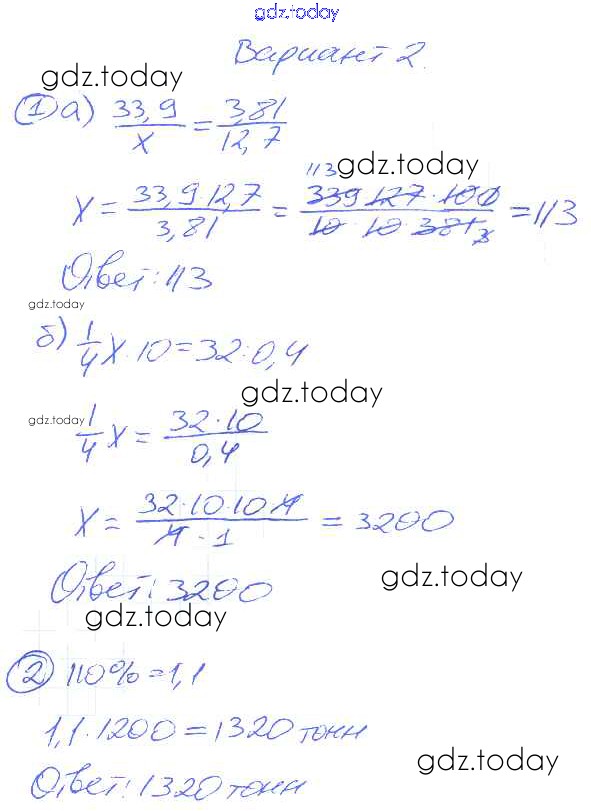 gdz.today
Вариант 2.
gdz.today
① а) 33,9/x = 3,81/12,7
113 gdz.today
x = 33,9 12,7/3,81 = 339 127 · 100/10 · 10 381 3 = 113
Ответ: 113
gdz.today
б) 1/4 x · 10 = 32 : 0,4
gdz.today
gdz.today 1/4 x = 32 · 10/0,4
x = 32 · 10 · 10 · 4/4 · 1 = 3200
gdz.today
Ответ: 3200
gdz.today
② 110% = 1,1
1,1 · 1200 = 1320 тонн
gdz.today
Ответ: 1320 тонн